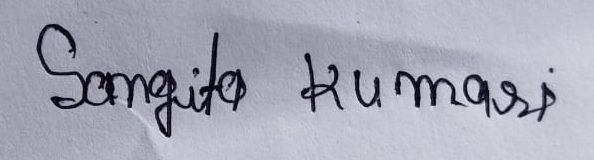 Sangita Kumari